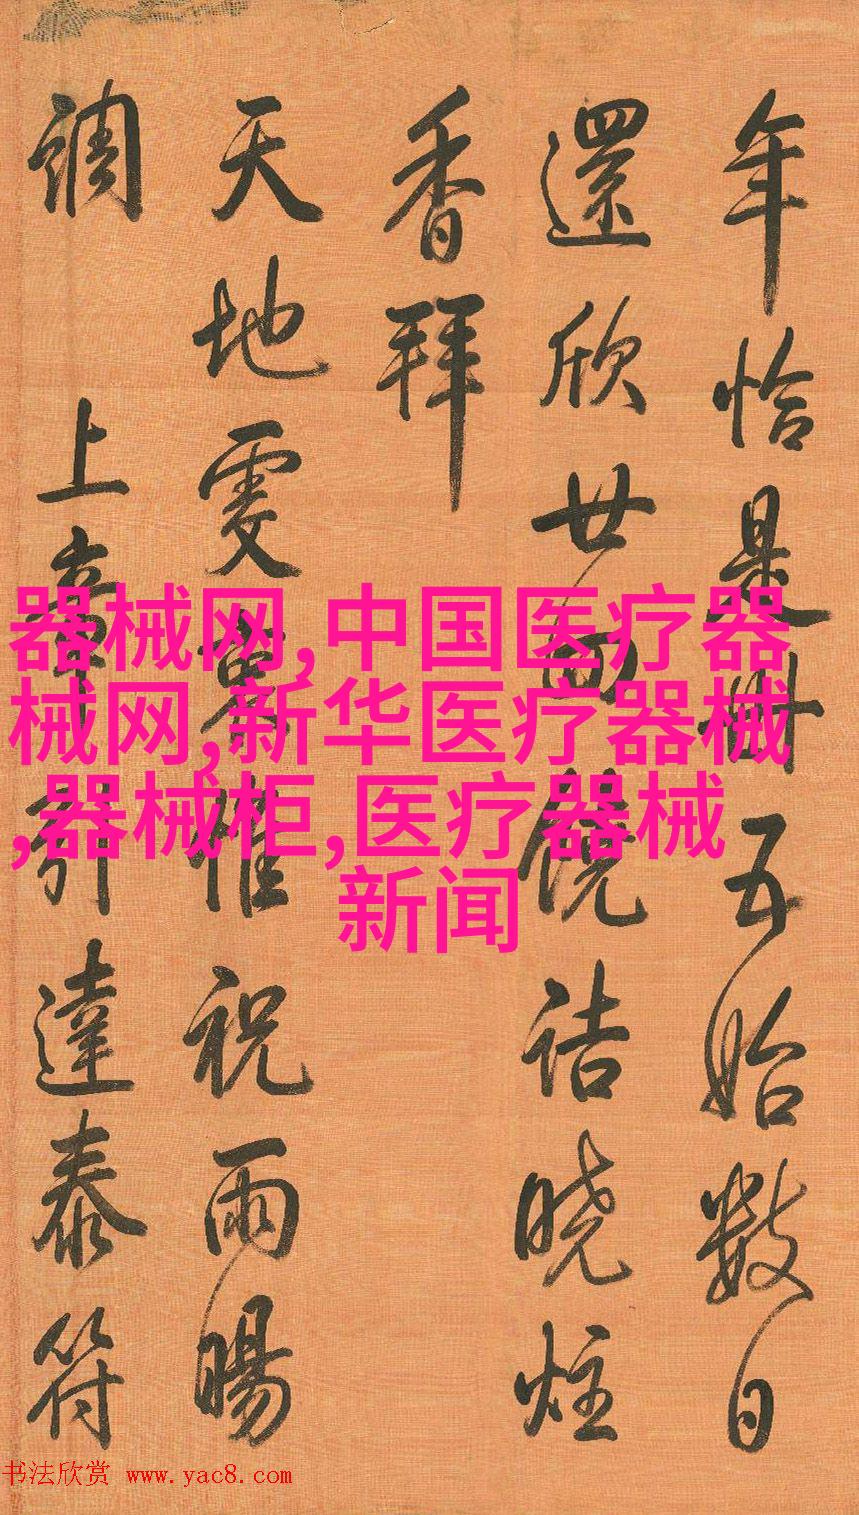 年恰是卅五始数日
還欣廿四饒詰曉炷
香拜
天地雯惟祝雨暘
調
上章引達泰符
器械网,中国医疗器
械网,新华医疗器械
,器械柜,医疗器械
新闻
书法欣赏 www.yac8.com